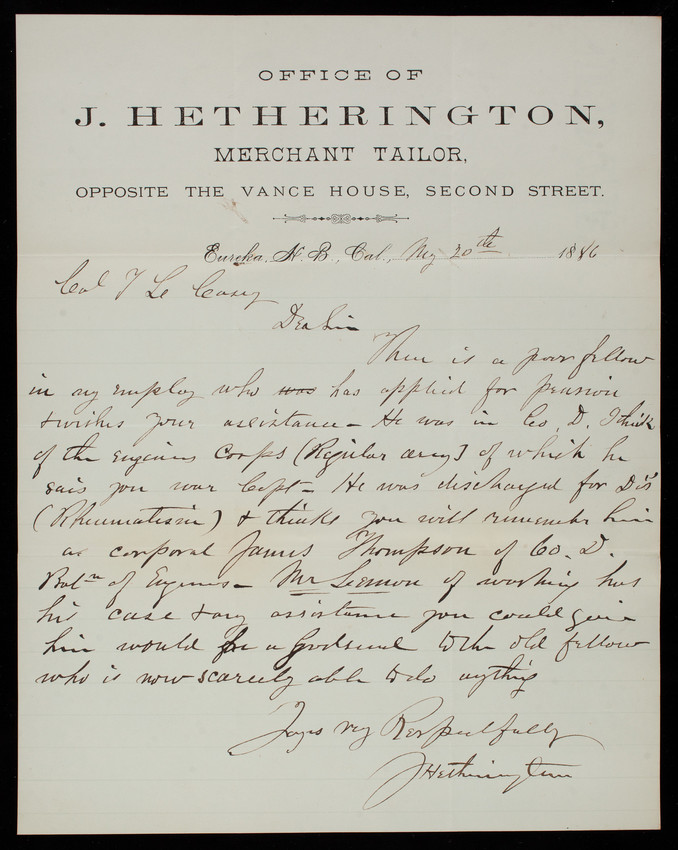 OFFICE OF
J. HETHERINGTON,
MERCHANT TAILOR,
OPPOSITE THE VANCE HOUSE, SECOND STREET.
Eureka, H. B., Cal., My 20th 1886
Col T L Casey
Dear Sir
There is a poor fellow
in my employ who was has applied for pension
& wishes your assistance - He was in Co. D. I think
of the engineer Corps (Regular army) of which he
sais you war Capt - He was discharged for Dis
(Rheumatism) & thinks you will remember him
as corporal James Thompson of Co. D.
Batn of Engines - Mr Lemon of washing has
his case & any assistance you could give
him would be a Godsend to the old fellow
who is now scarcely able to do anything
Yours very Respectfully
J Hetherington